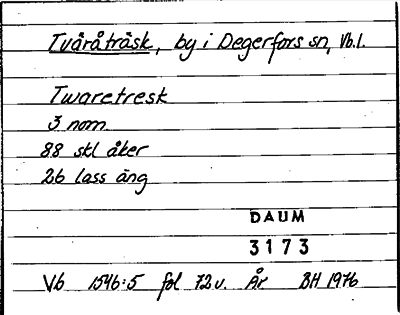 Tväråträsk, by i Degerfors sn, Vb.l.
Twaretresk
3 nom.
88 skl åker
26 lass äng
DAUM
3173
Vb 1546:5 fol 72v. År BH 1976